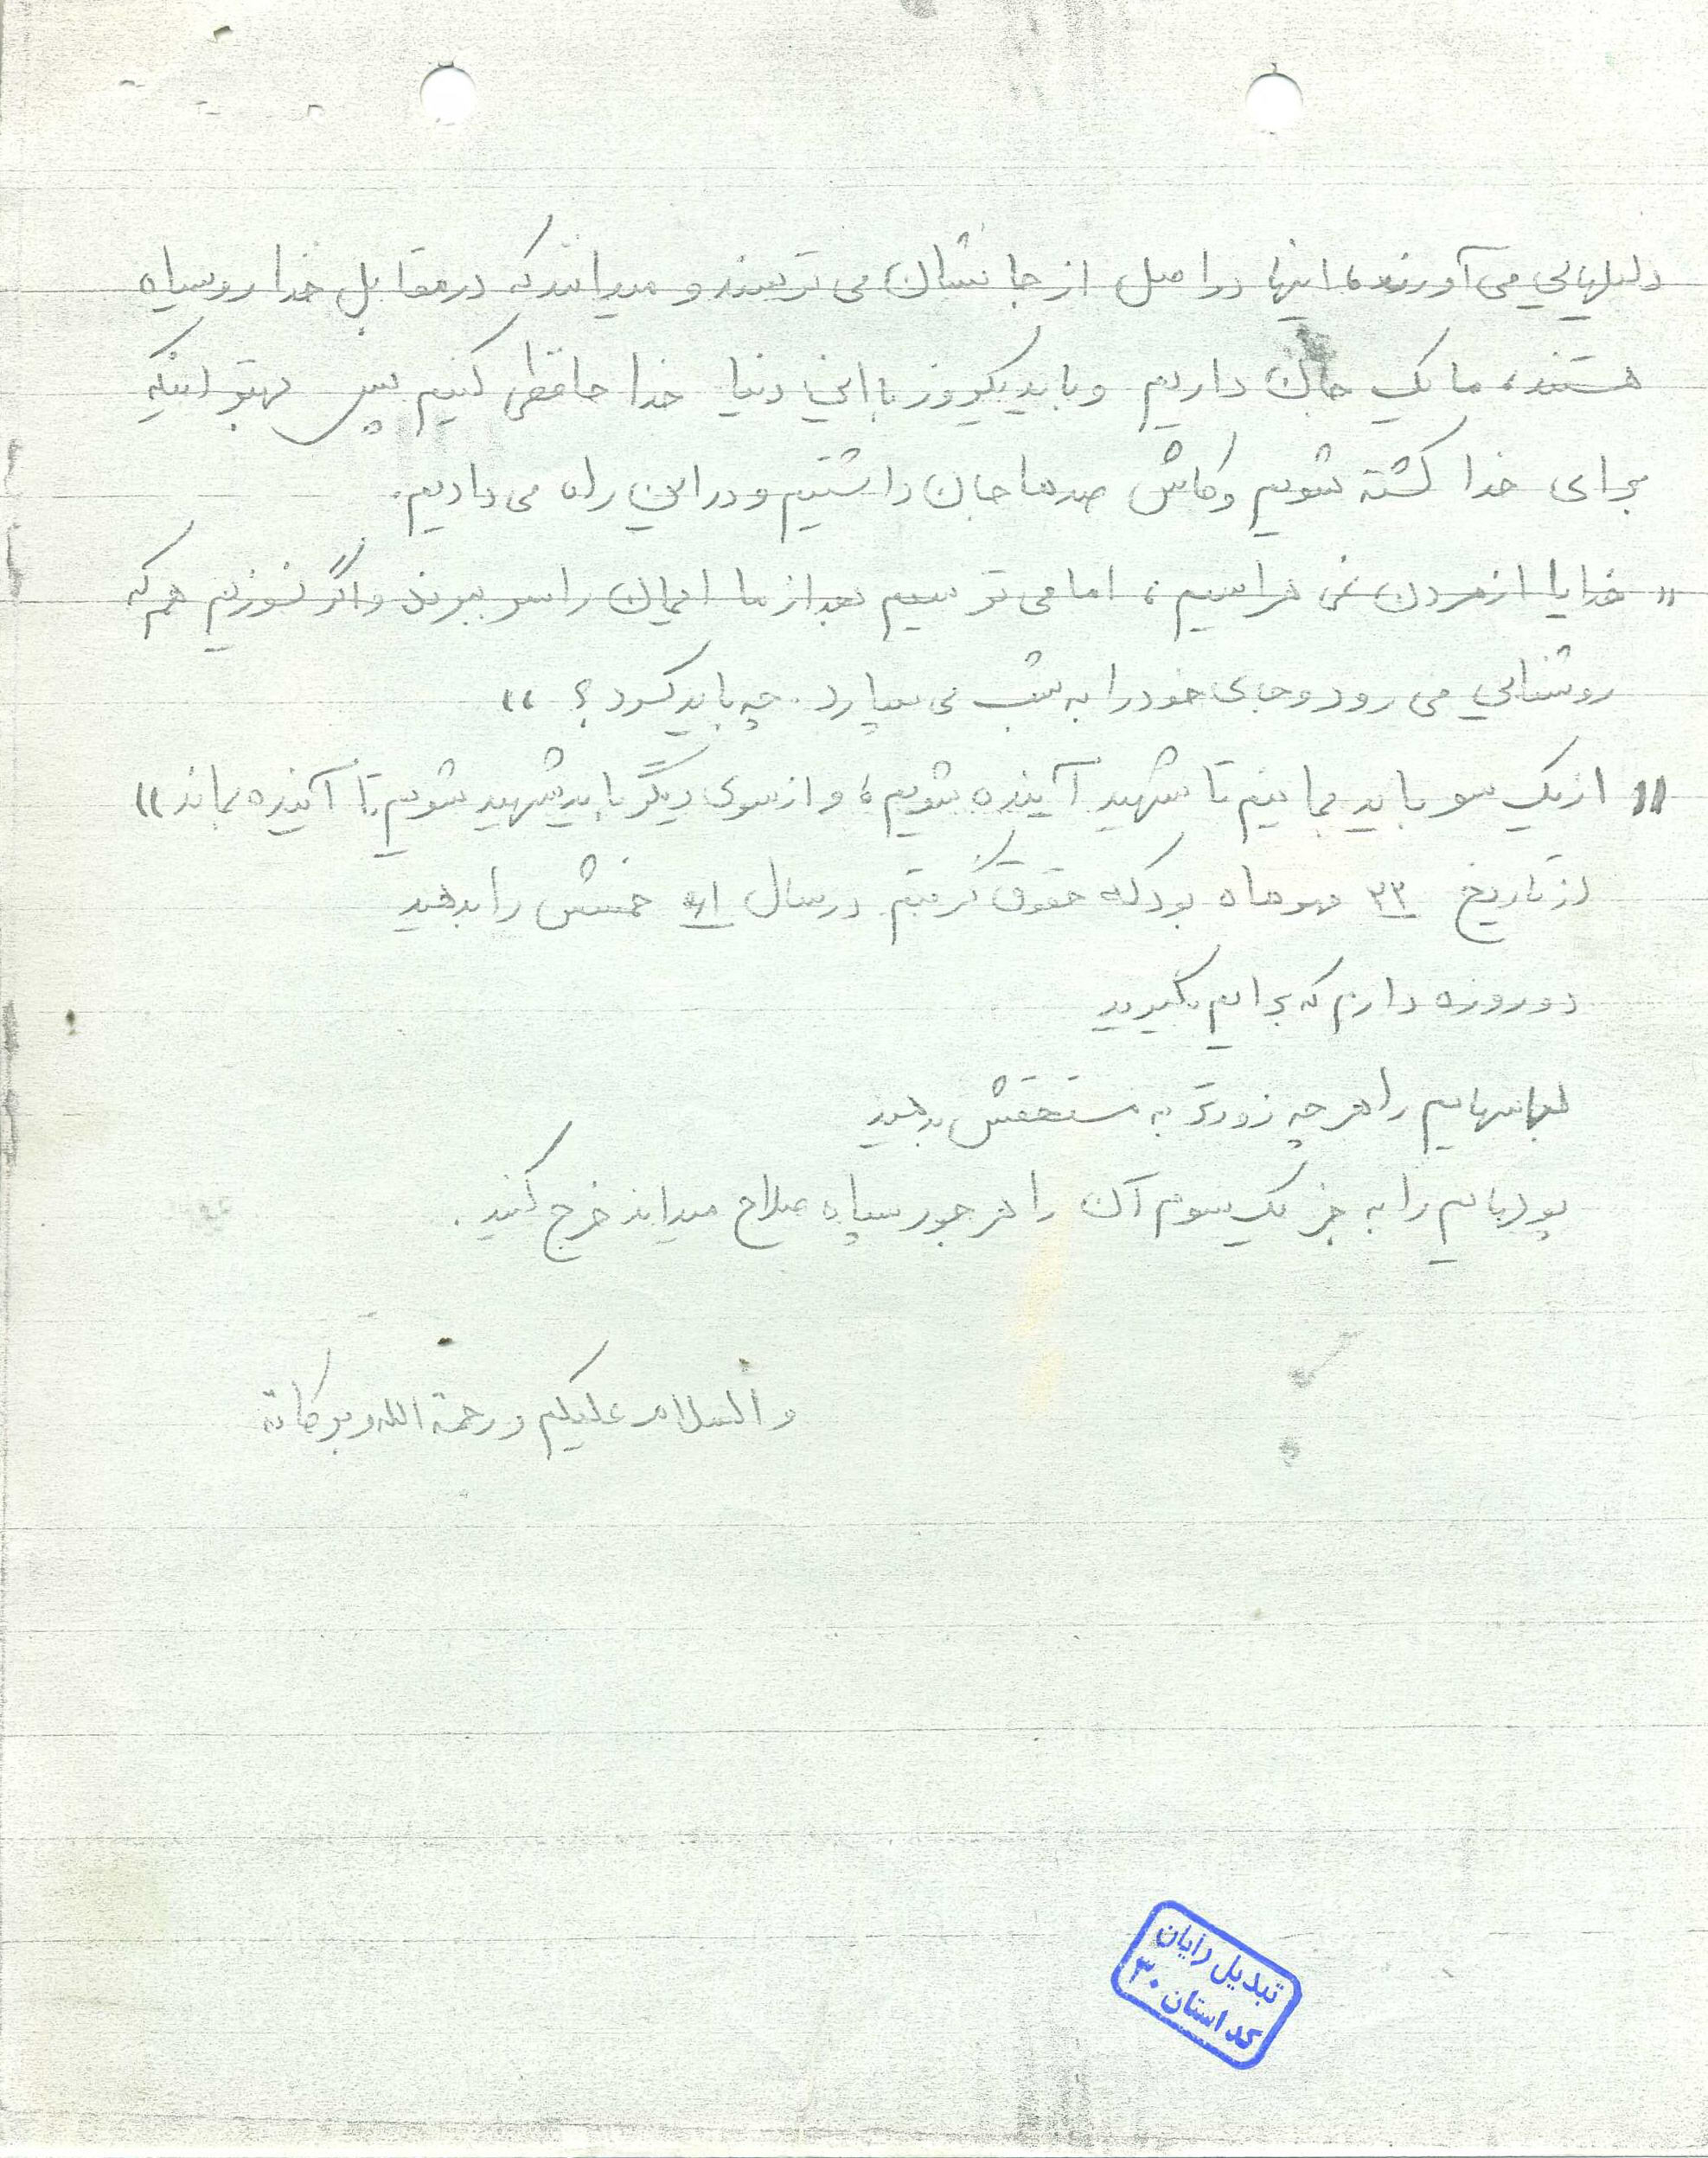 دلیلهایی می آورند، اینها در اصل از جانشان می ترسند و میدانند که در مقابل خدا روسیاه
هستند، ما یک جان داریم و باید یکروز با این دنیا خدا حافظی کنیم پس بهتر اینکه
برای خدا کشته شویم و کاش صدها جان داشتیم و در این راه می دادیم.
" خدایا از مردن نمی هراسیم، اما می ترسیم بعد از ما ایمان را سر ببرند و اگر نسوزیم هم که
روشنایی می رود و جای خود را به شب می سپارد. چه باید کرد؟ "
" از یک سو باید بمانیم تا شهید آینده شویم، و از سوی دیگر باید شهید شویم تا آینده بماند "
از تاریخ ۲۳ مهرماه بود که حقوق گرفتم در سال ۶۱ خمسش را بدهید
دو روزه دارم که برایم بگیرید
لباسهایم را هر چه زودتر به مستحقش بدهید
پولهایم را به جز یک سوم آن را هر جور سپاه صلاح میداند خرج کنید.
والسلام علیکم و رحمة الله و برکاته
تبدیل رایان
کد استان ۳۰